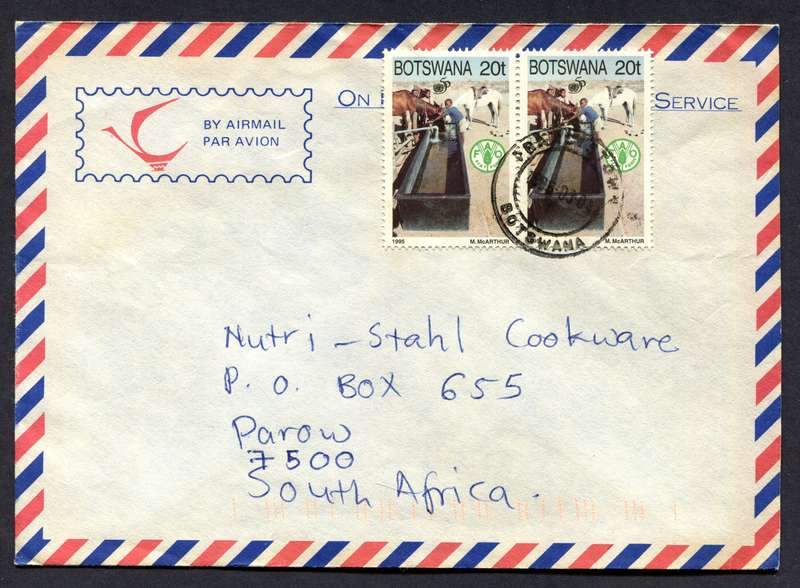 BOTSWANA 20t
BOTSWANA 20t
50
50
ON
SERVICE
BY AIRMAIL
PAR AVION
FAO
FAO
BOTSWANA
1995 M. McARTHUR
M. McARTHUR
Nutri-Stahl Cookware
P. O. BOX 655
Parow
7500
South Africa.